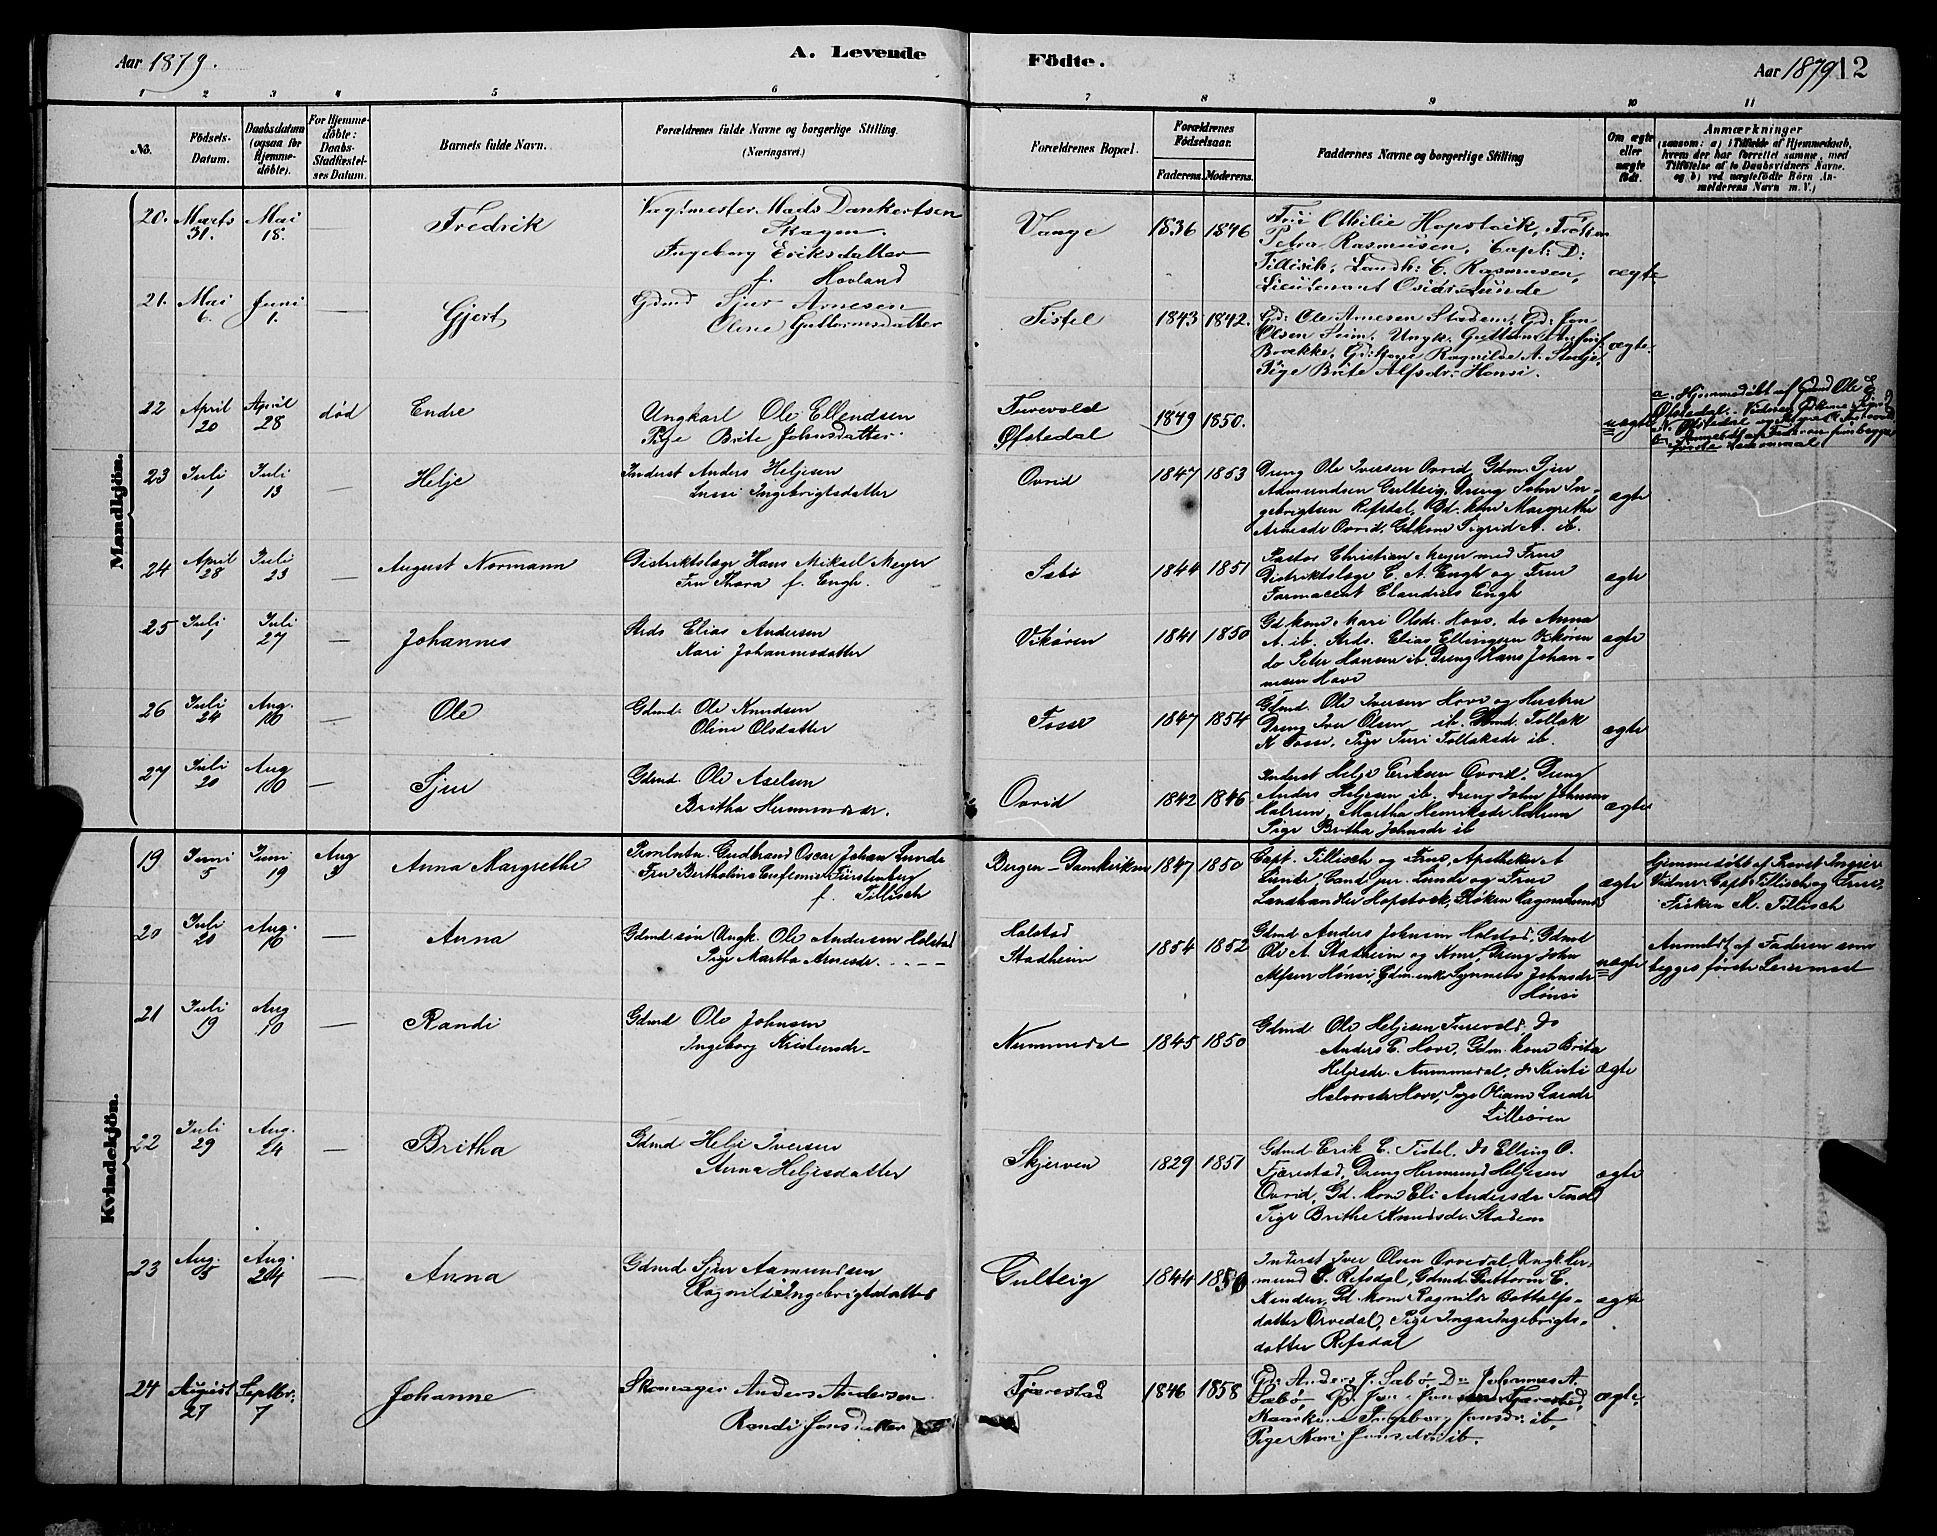 Aar 1879.
A. Levende
Födte.
Aar 1879
12
1 2 3 4 5 6 7 8 9 10 11
No.
Födsels-
Datum.
Daabsdatum
(ogsaa for
Hjemme-
döbte).
For Hjemme-
döbte:
Daabs-
Stadfæstel-
ses Datum.
Barnets fulde Navn.
Forældrenes fulde Navne og borgerlige Stilling.
(Næringsvei.)
Forældrenes Bopæl.
Forældrenes
Födselsaar.
Faderens. Moderens.
Faddernes Navne og borgerlige Stilling
Om ægte
eller
uægte
födt.
Anmærkninger
(saasom: a) i Tilfælde af Hjemmedaab,
hvem der har forrettet samme, med
Tilföielse af to Daabsvidners Navne.
og b) ved uægtefödte Börn An-
melderens Navn m. V.)
Mandkjön.
20. Marts 31. Mai 18. — Fredrik
Vagtmester Mads Dankertsen
Skagen.
Ingeborg Eriksdatter
f. Hovland
Vange 1836 1846
Petra Rasmusen, Capt: D:
Tillisch, Landh: C. Rasmusen,
Lieutenant Lunde
ægte
21. Mai 6. Juni 1. — Gjert
Gdmd Sjur Arnesen
Oline Guttormsdatter
Tistel 1843 1842.
Gd: Ole Arnesen Stadem, Gd: Jon
Olsen Ungk. Guttorm
Brække, Ragnilde A.
Pige Brite Alfsdr: Hønsi.
ægte.
22 April 20 April 28 død Endre
Ungkarl Ole Ellendsen
Pige Brite Johnsdatter.
Turevold
Øfstedal
1849 1850.
uægte
a. Hjemmedöbt af Gmd Ole E.
Øfstedal.
23 Juli 1 Juli 13 — Helje
Inderst Anders Heljesen
Ingebrigtsdatter
Ovrid 1847 1853
Dreng Ole Iversen Ovrid, Gdm. Sjur
Aamundsen Gulteig, Dreng John In-
gebrigtsen Refsdal, Gd. kone Margrethe
Arnesdr Ovrid, Gdkone Sigrid A. ib.
ægte
24 April 28 Juli 23 — August Normann
Distriktslæge Hans Mikael Meyer
Fru Thora f. Engh.
Sæbø 1844 1851
Pastor Christian Meyer med Frue
Distriktslæge C. A. Engh og Frue
Farmaceut Claudius Engh
ægte
25 Juli 1 Juli 27 — Johannes
Strds Elias Andersen
Kari Johannesdatter
Vikøren 1841 1850
Gdkone Mari Olsdr. Hove, do Anna
A. ib. Strds. Elias Ellingsen Vikøren
do Peter Hansen ib. Dreng Hans Johan-
nesen Hove
ægte
26 Juli 24 Aug. 10 — Ole
Gdmd. Ole Knudsen
Oline Olsdatter
Fosse 1847 1854
Gdmd. Ole Iversen Hove og Hustru
Dreng Iver Olsen ib. Gdmd. Tollak
K Fosse, Pige Turi Tollaksdr ib.
ægte
27 Juli 20 Aug 10 — Sjur
Gdmd. Ole Axelsen
Britha
Ovrid 1842 1846
Inderst Helje Eriksen Ovrid, Dreng
Anders Heljesen ib. Dreng John Johnsen
Martha Henriksdr
Pige Britha Johnsdr ib
ægte
Kvindekjön.
19 Juni 5 Juni 19 Aug 3 Anna Margrethe
Gudbrand Oscar Johan Lunde
Fru Bertholine Eufemia Fürstenberg
f. Tillisch
Bergen - Damkirken 1847 1850
Capt. Tillisch og Frue, Apotheker A
Lunde Cand jur. Lunde og Frue
Landhandler Hopstock, Frøken Ragna Lunde
ægte
Hjemmedöbt af Provst
Vidner Capt Tillisch og Frue,
Frøken M. Tillisch
20 Juli 20 Aug. 10 — Anna
Gdmd.søn Ungk. Ole Andersen Holstad
Pige Martha Arnesdr. - - - -
Holstad
Stadheim
1854 1852
Gdmd Anders Johnsen Holstad, Gdmd
Ole A. Stadheim og Kone, Dreng John
Alfsen Hønsi, Gdm.enke Synneve Johnsdr
Hønsi
uægte
Anmeldt af Faderen som
begges første Leiermaal
21 Juli 19 Aug 10 — Randi
Gdmd Ole Johnsen
Ingeborg Kristensdr.
Nummedal 1845 1850
Gdmd Ole Heljesen Turevold, do
Anders E. Hove, Gdm. kone Brita
Heljesdr. Nummedal, do Kristi
Halvorsdr Hove, Pige Oliane Larsdr
Lilleøren
ægte
22 Juli 29 Aug. 24 — Britha
Gdmd Helje Iversen
Anna Heljesdatter
Skjerven 1829 1851
Gdmd Erik E. Tistel, do Elling O.
Fjærestad, Dreng Hermund Heljesen
Ovrid, Gd. kone Eli Andersdr
Pige Brithe Knudsdr. Stadem
ægte
23 Aug. 3 Aug. 24 — Anna
Gdmd Sjur Aamundsen
Ragnilde Ingebrigtsdatter
Gulteig 1844 1850
Inderst Iver Olsen Orvedal, Ungk. Her-
mund S. Refsdal, Gdmd. Guttorm E.
Gd. kone Ragnilde Bottolfs-
datter Orvedal, Pige Inga Ingebrigts-
datter Refsdal
ægte
24 August 27 Septbr. 7 Johanne
Skomager Anders Andersen
Randi Jonsdatter
Fjærestad 1846 1858
Gd: Anders J. Sæbø, Do Johannes A.
Sæbø, Gd. Jon Fjærestad,
Ingeborg Jonsdr. ib.
Pige Kari Jonsdr ib.
ægte.